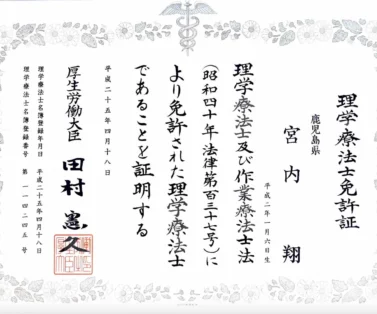 理学療法士免許証
鹿児島県
宮内 翔
平成二年一月六日生
理学療法士及び作業療法士法
(昭和四十年法律第百三十七号)に
より免許された理学療法士
であることを証明する
平成二十五年四月十八日
厚生労働大臣 田村憲久
理学療法士名簿登録年月日 平成二十五年四月十八日
理学療法士名簿登録番号 第一一四二四五号